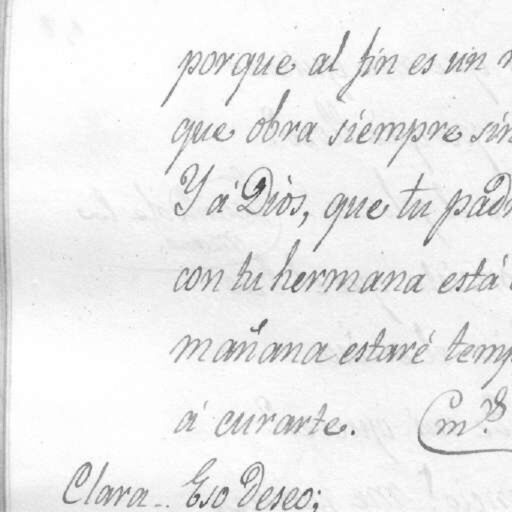 porque al fin es un
que obra siempre sin
Y á Diòs, que tu pad
con tu hermana está
mañana estaré temp
á curarte. (m.s
Clara.. Eso deseo;